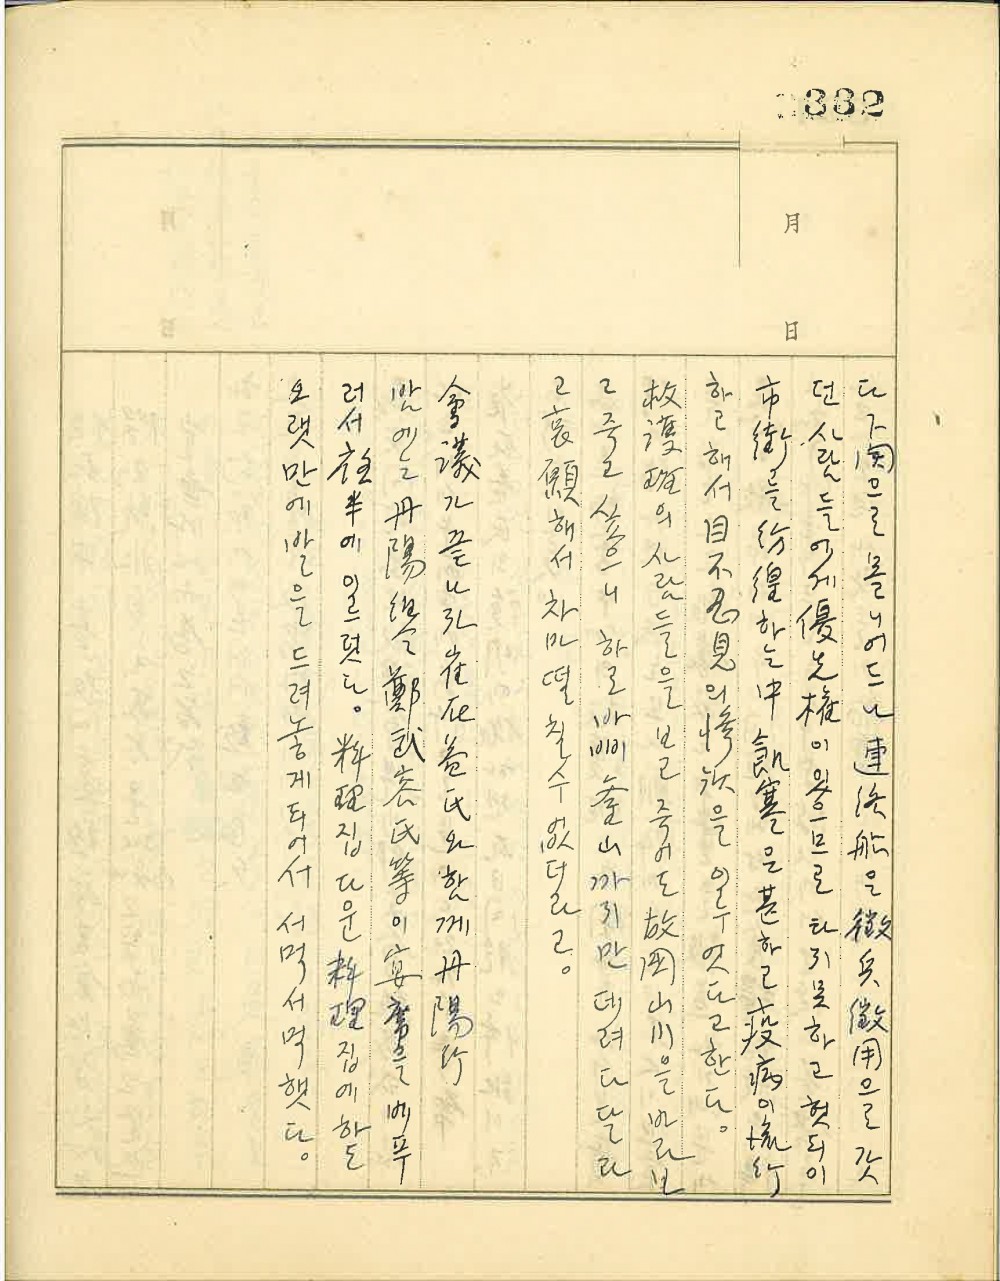 3882
月
日
다 下関으로 몰니어드나 連洛船은 徵兵徵用으로 갓
던 사람들에게 優先權이 있으므로 타지못하고 헛되이
市街를 彷徨하는中 飢寒은 甚하고 疫病이 流行
하고해서 目不忍見의 慘狀을 일우엇다고한다。
救護班의 사람들을 보고 죽어도 故国山川을 바라보
고 죽고 싶으니 하로 바삐 釜山까지만 데려다달라
고 哀願해서 차마 떨칠수 없더라고。
會議가 끝나자 崔在益氏와 함께 丹陽行
밤에는 丹陽組合 鄭武
氏等이 宴席을 베푸
러서 夜半에 일르럿다。料理집다운 料理집에 하도
오랫만에 발을 드려놓게되어서 서먹서먹햇다。